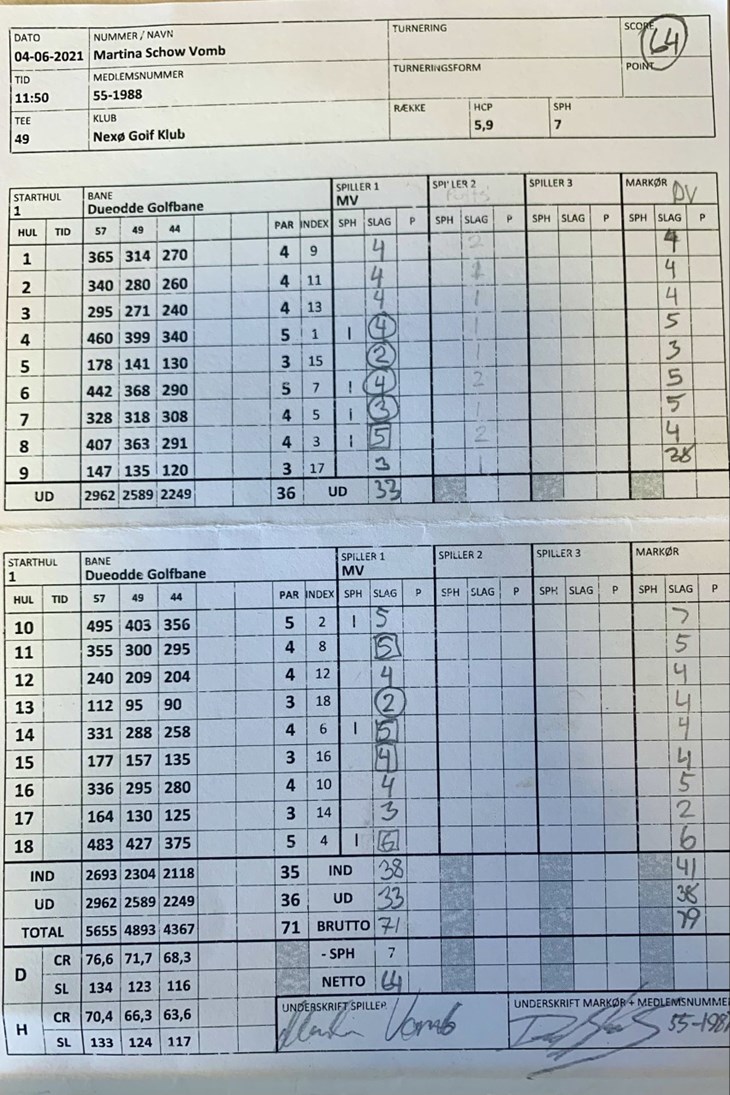 DATO NUMMER / NAVN TURNERING SCORE 64
04-06-2021 Martina Schow Vomb
TID MEDLEMSNUMMER TURNERINGSFORM POINT
11:50 55-1988
TEE KLUB RÆKKE HCP SPH
49 Nexø Golf Klub 5,9 7
STARTHUL BANE SPILLER 1 SPILLER 2 SPILLER 3 MARKØR DV
1 Dueodde Golfbane MV
HUL TID 57 49 44 PAR INDEX SPH SLAG P SPH SLAG P SPH SLAG P SPH SLAG P
1 365 314 270 4 9 4 2 4
2 340 280 260 4 11 4 4
3 295 271 240 4 13 4 1 4
4 460 399 340 5 1 I 4 1 5
5 178 141 130 3 15 2 1 3
6 442 368 290 5 7 I 4 2 5
7 328 318 308 4 5 I 3 1 5
8 407 363 291 4 3 I 5 2 4
9 147 135 120 3 17 3 1
UD 2962 2589 2249 36 UD 33 38
STARTHUL BANE SPILLER 1 SPILLER 2 SPILLER 3 MARKØR
1 Dueodde Golfbane MV
HUL TID 57 49 44 PAR INDEX SPH SLAG P SPH SLAG P SPH SLAG P SPH SLAG P
10 495 403 356 5 2 I 5 7
11 355 300 295 4 8 5 5
12 240 209 204 4 12 4 4
13 112 95 90 3 18 2 4
14 331 288 258 4 6 I 5 4
15 177 157 135 3 16 4 4
16 336 295 280 4 10 4 5
17 164 130 125 3 14 3 2
18 483 427 375 5 4 I 6 6
IND 2693 2304 2118 35 IND 38 41
UD 2962 2589 2249 36 UD 33 38
TOTAL 5655 4893 4367 71 BRUTTO 71 79
D CR 76,6 71,7 68,3 - SPH 7
SL 134 123 116 NETTO 64
H CR 70,4 66,3 63,6 UNDERSKRIFT SPILLER UNDERSKRIFT MARKØR + MEDLEMSNUMME
SL 133 124 117 Vomb 55-1987